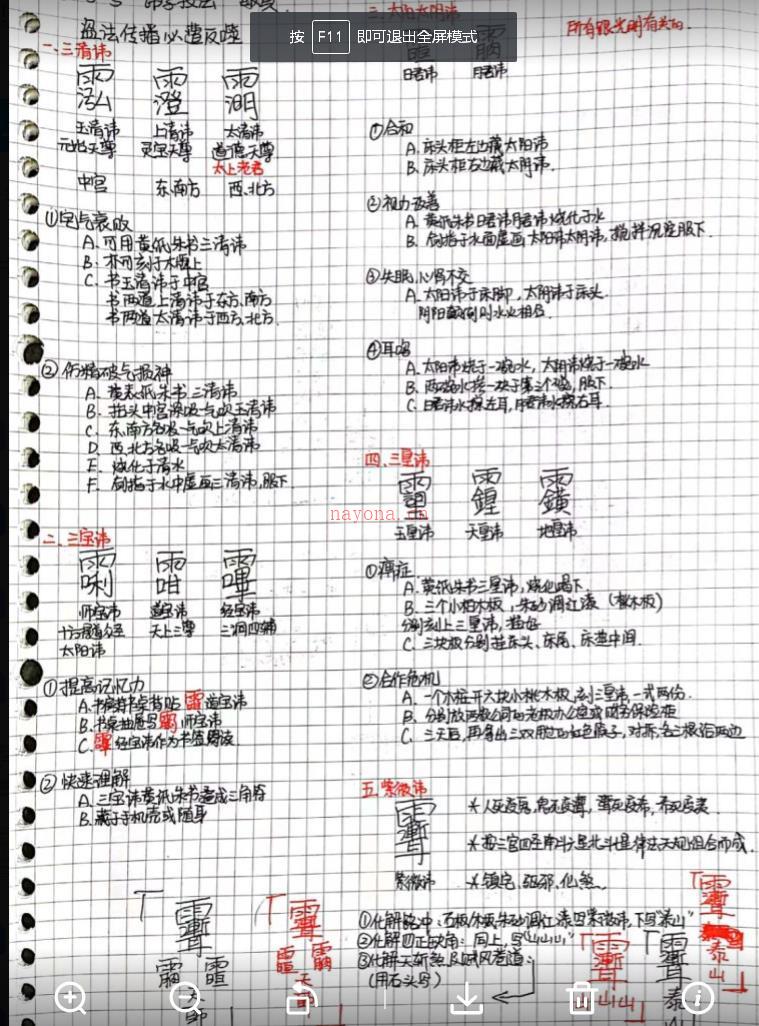 盗法传播必遭反噬
一、三清讳
玉清讳 上清讳 太清讳
元始天尊 灵宝天尊 道德天尊
太上老君
中宫 东、南方 西、北方
①宅气衰败
A. 可用黄纸朱书三清讳
B. 亦可刻于木板上
C. 书玉清讳于中宫
书两道上清讳于东方、南方
书两道太清讳于西方、北方.
②伤精破气损神
A. 黄表纸朱书三清讳
B. 抬头中宫深吸一气吹玉清讳
C. 东、南方各吸一气吹上清讳
D. 西、北方各吸一气吹太清讳
E. 烧化于清水
F. 剑指于水中虚画三清讳，服下
二、三宝讳
师宝讳 道宝讳 经宝讳
天上三尊 三洞四辅
太阳讳
①提高记忆力
A. 书房书桌背贴 道宝讳
B. 书桌抽屉写 师宝讳
C. 经宝讳作为书签阅读
②快速理解
A. 三宝讳黄纸朱书叠成三角符
B. 藏于手机壳或随身
三、太阳太阴讳
所有跟光明有关的.
日君讳 月君讳
①合和
A. 床头柜左边藏太阳讳
B. 床头柜右边藏太阴讳.
②视力改善
A. 黄纸朱书日君讳月君讳烧化于水
B. 剑指于水面虚画太阳讳太阴讳，搅拌沉淀服下.
③失眠，心肾不交
A. 太阳讳于床脚，太阴讳于床头.
阴阳颠倒则水火相合.
④耳鸣
A. 太阳讳烧于一碗水，太阴讳烧于一碗水
B. 两碗水搅一块于第三个碗，服下.
C. 日君讳水擦左耳，月君讳水擦右耳.
四、三皇讳
玉皇讳 天皇讳 地皇讳
nayona.cn
①癔症
A. 黄纸朱书三星讳，烧化喝下.
B. 三个小柏木板，朱砂调红漆
分别刻上三星讳，描好
C. 三块板分别挂床头、床尾、床造中间.
②合作危机
A. 一个木桩开六块小桃木板，刻三星讳一式两份.
B. 分别放两家公司的老板办公室或财务保险柜
五、紫微讳
紫微讳
*按三宫四圣南斗六星北斗七星律法天规组合而成.
*镇宅，驱邪，化煞.
①化解路冲：石板/木板朱砂调红漆写紫微讳，下写“泰山”
②化解四正缺角：同上，写“山山山”
③化解天斩煞及贼风巷道：
(用石头写)
泰
山
按 F11 即可退出全屏模式